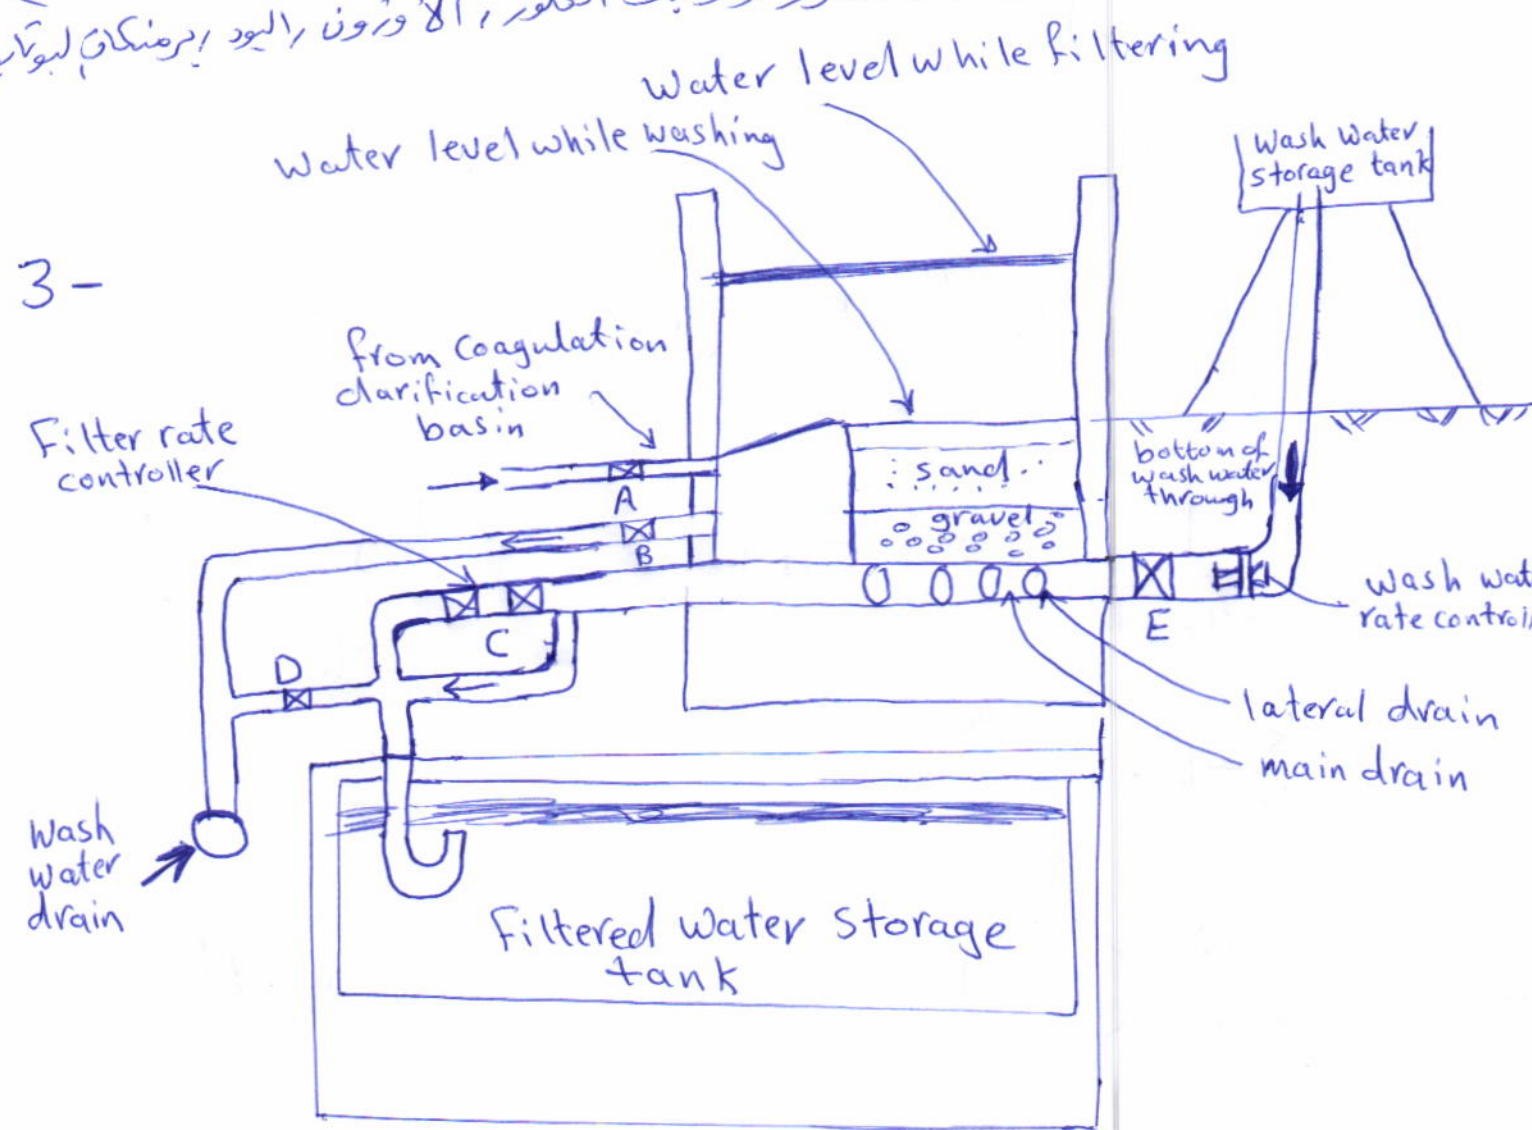 الأوزون، اليود، برمنكات
Water level while filtering
Water level while washing
Wash Water
storage tank
3-
from Coagulation
clarification
basin
Filter rate
controller
A
B
C
D
E
sand
gravel
bottom of
wash water
through
wash
rate
lateral drain
main drain
Wash
water
drain
Filtered Water Storage
tank